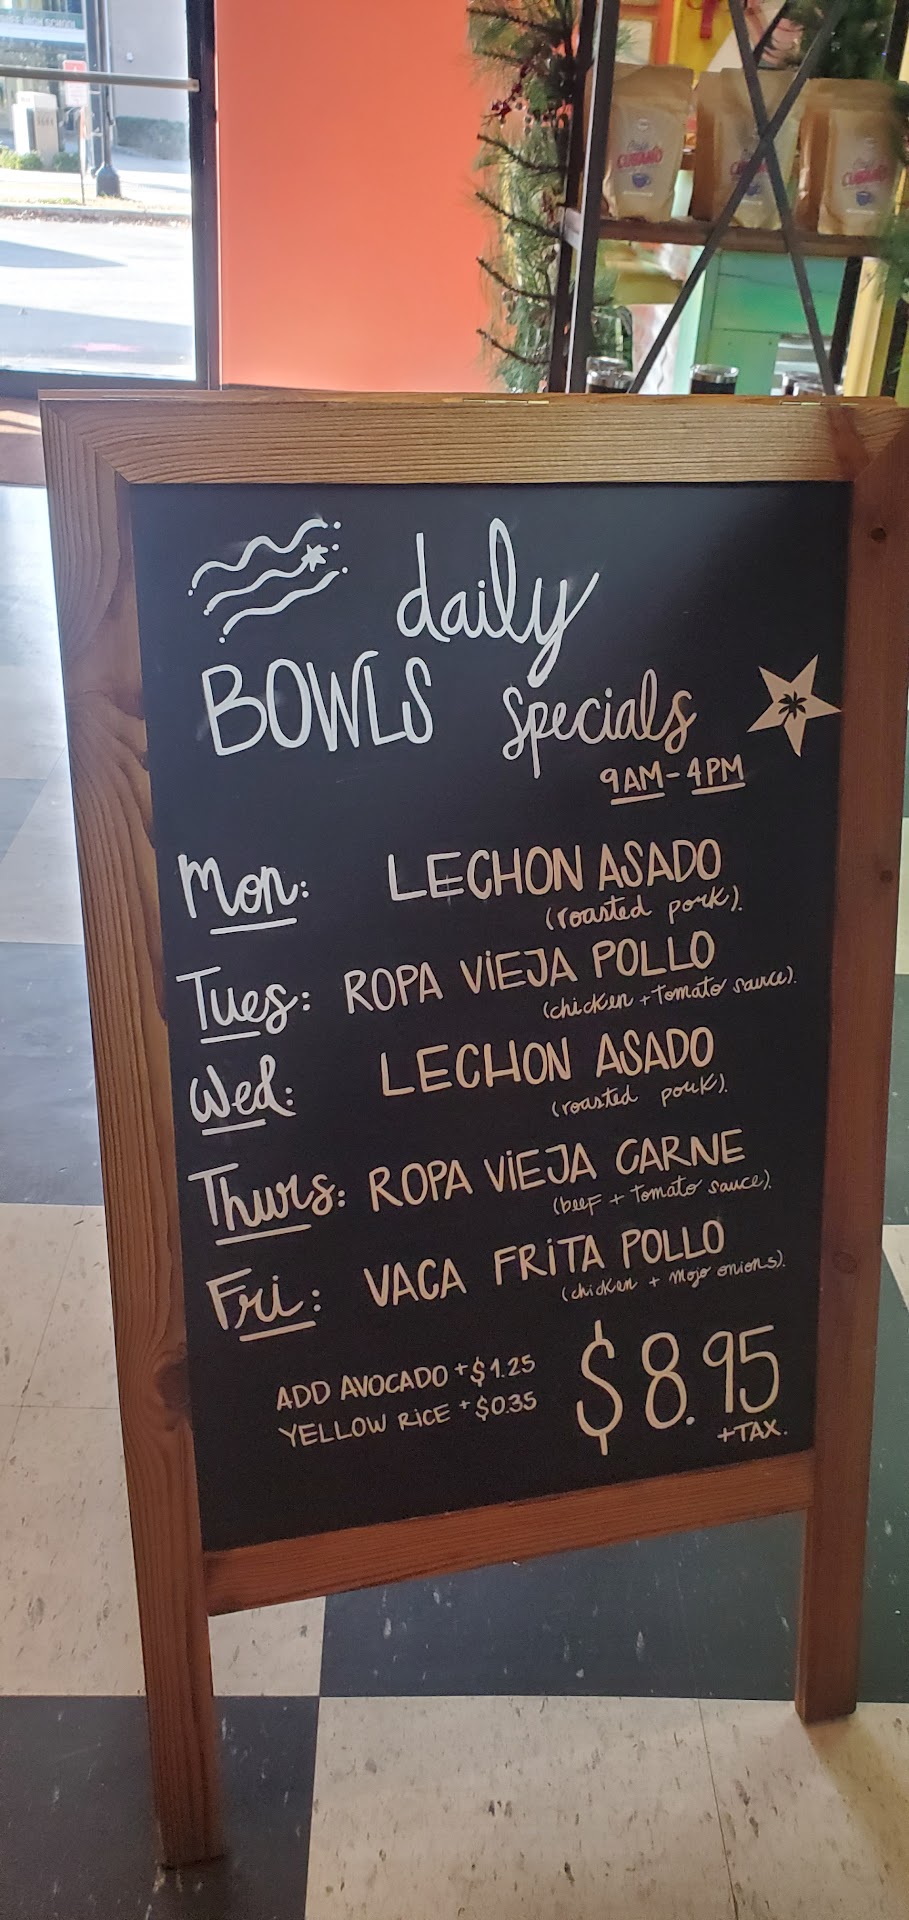 HIGH SCHOOL
Café
CUBANO
CUBANO
daily
BOWLS specials
9AM-4PM
Mon: LECHON ASADO
(roasted pork).
Tues: ROPA ViEJA POLLO
(chicken + tomato sauce).
Wed: LECHON ASADO
(roasted pork).
Thurs: ROPA ViEJA CARNE
(beef + tomato sauce).
Fri: VACA FRiTA POLLO
(chicken + mojo onions).
ADD AVOCADO +$1.25
YELLOW RiCE +$0.35
$8.95
+TAX.